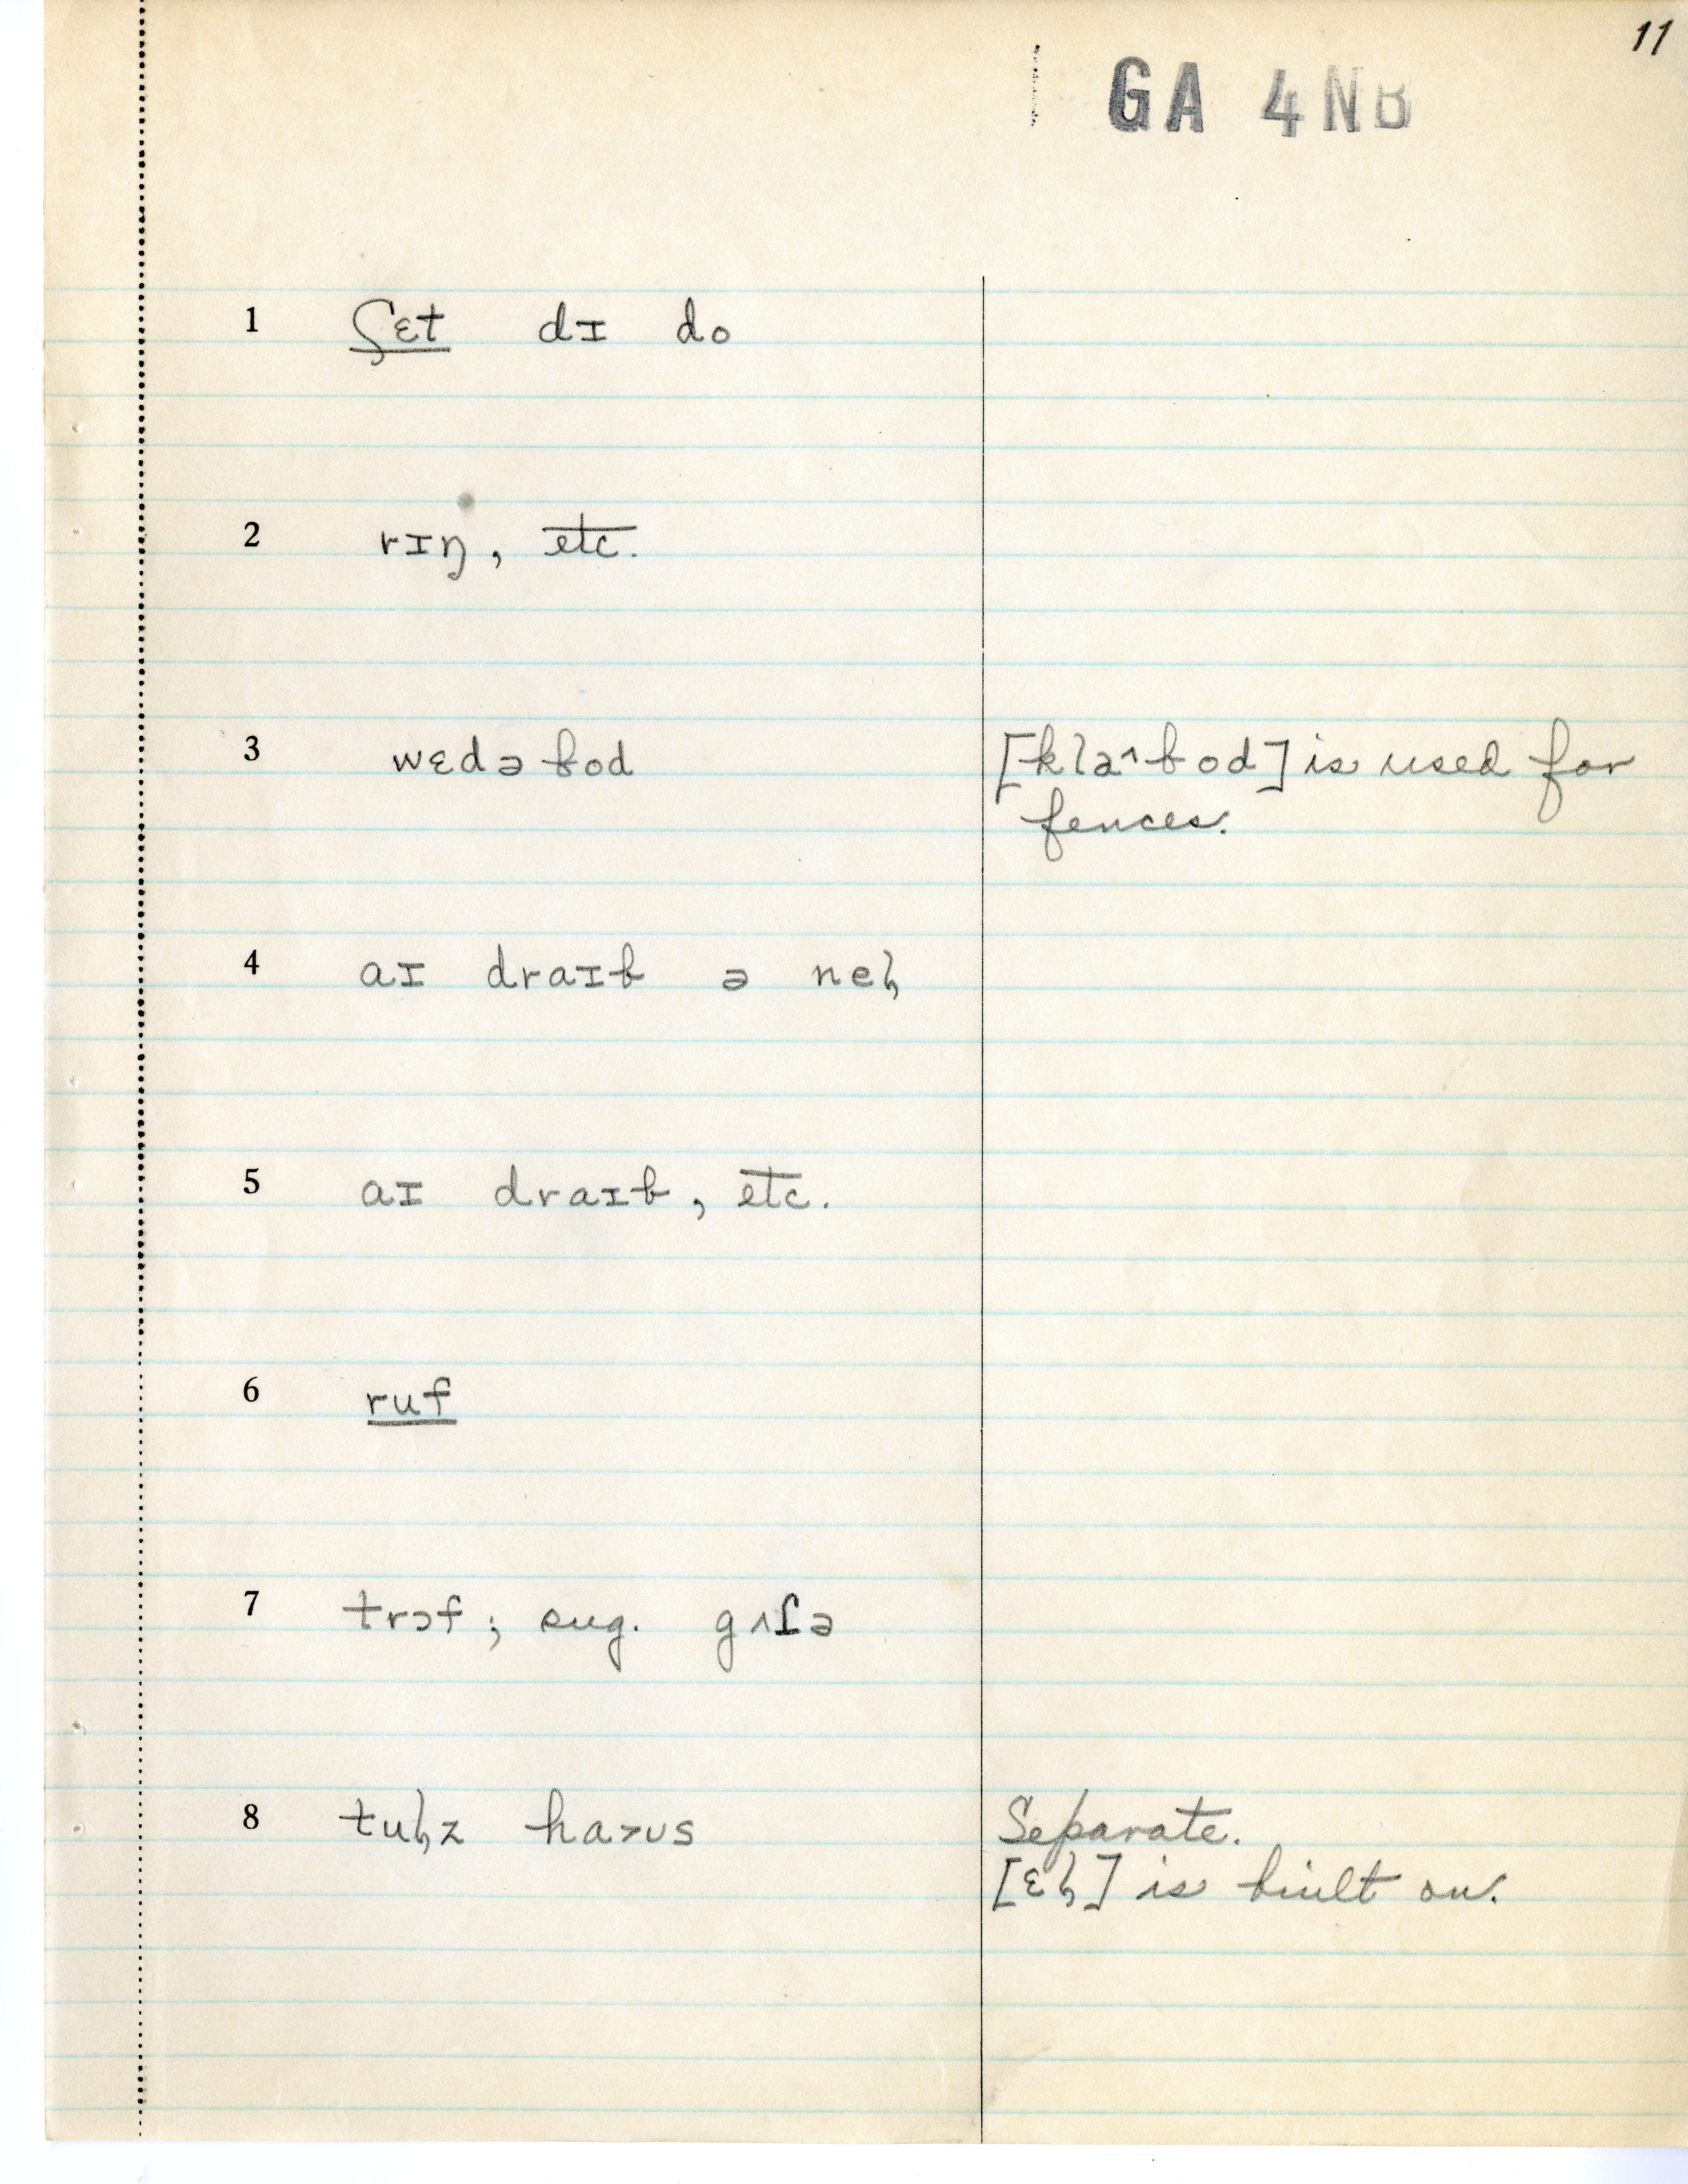 11
GA 4NB
1 ʃɛt dɪ do
2 rɪŋ, etc.
3 wɛdəbod [klə^bod] is used for
fences.
4 aɪ draɪb ə neɫ
5 aɪ draɪb, etc.
6 ruf
7 trɔf; sug. gʌtə
8 tuɫz ha>ʊs Separate.
[ɛɫ] is built on.